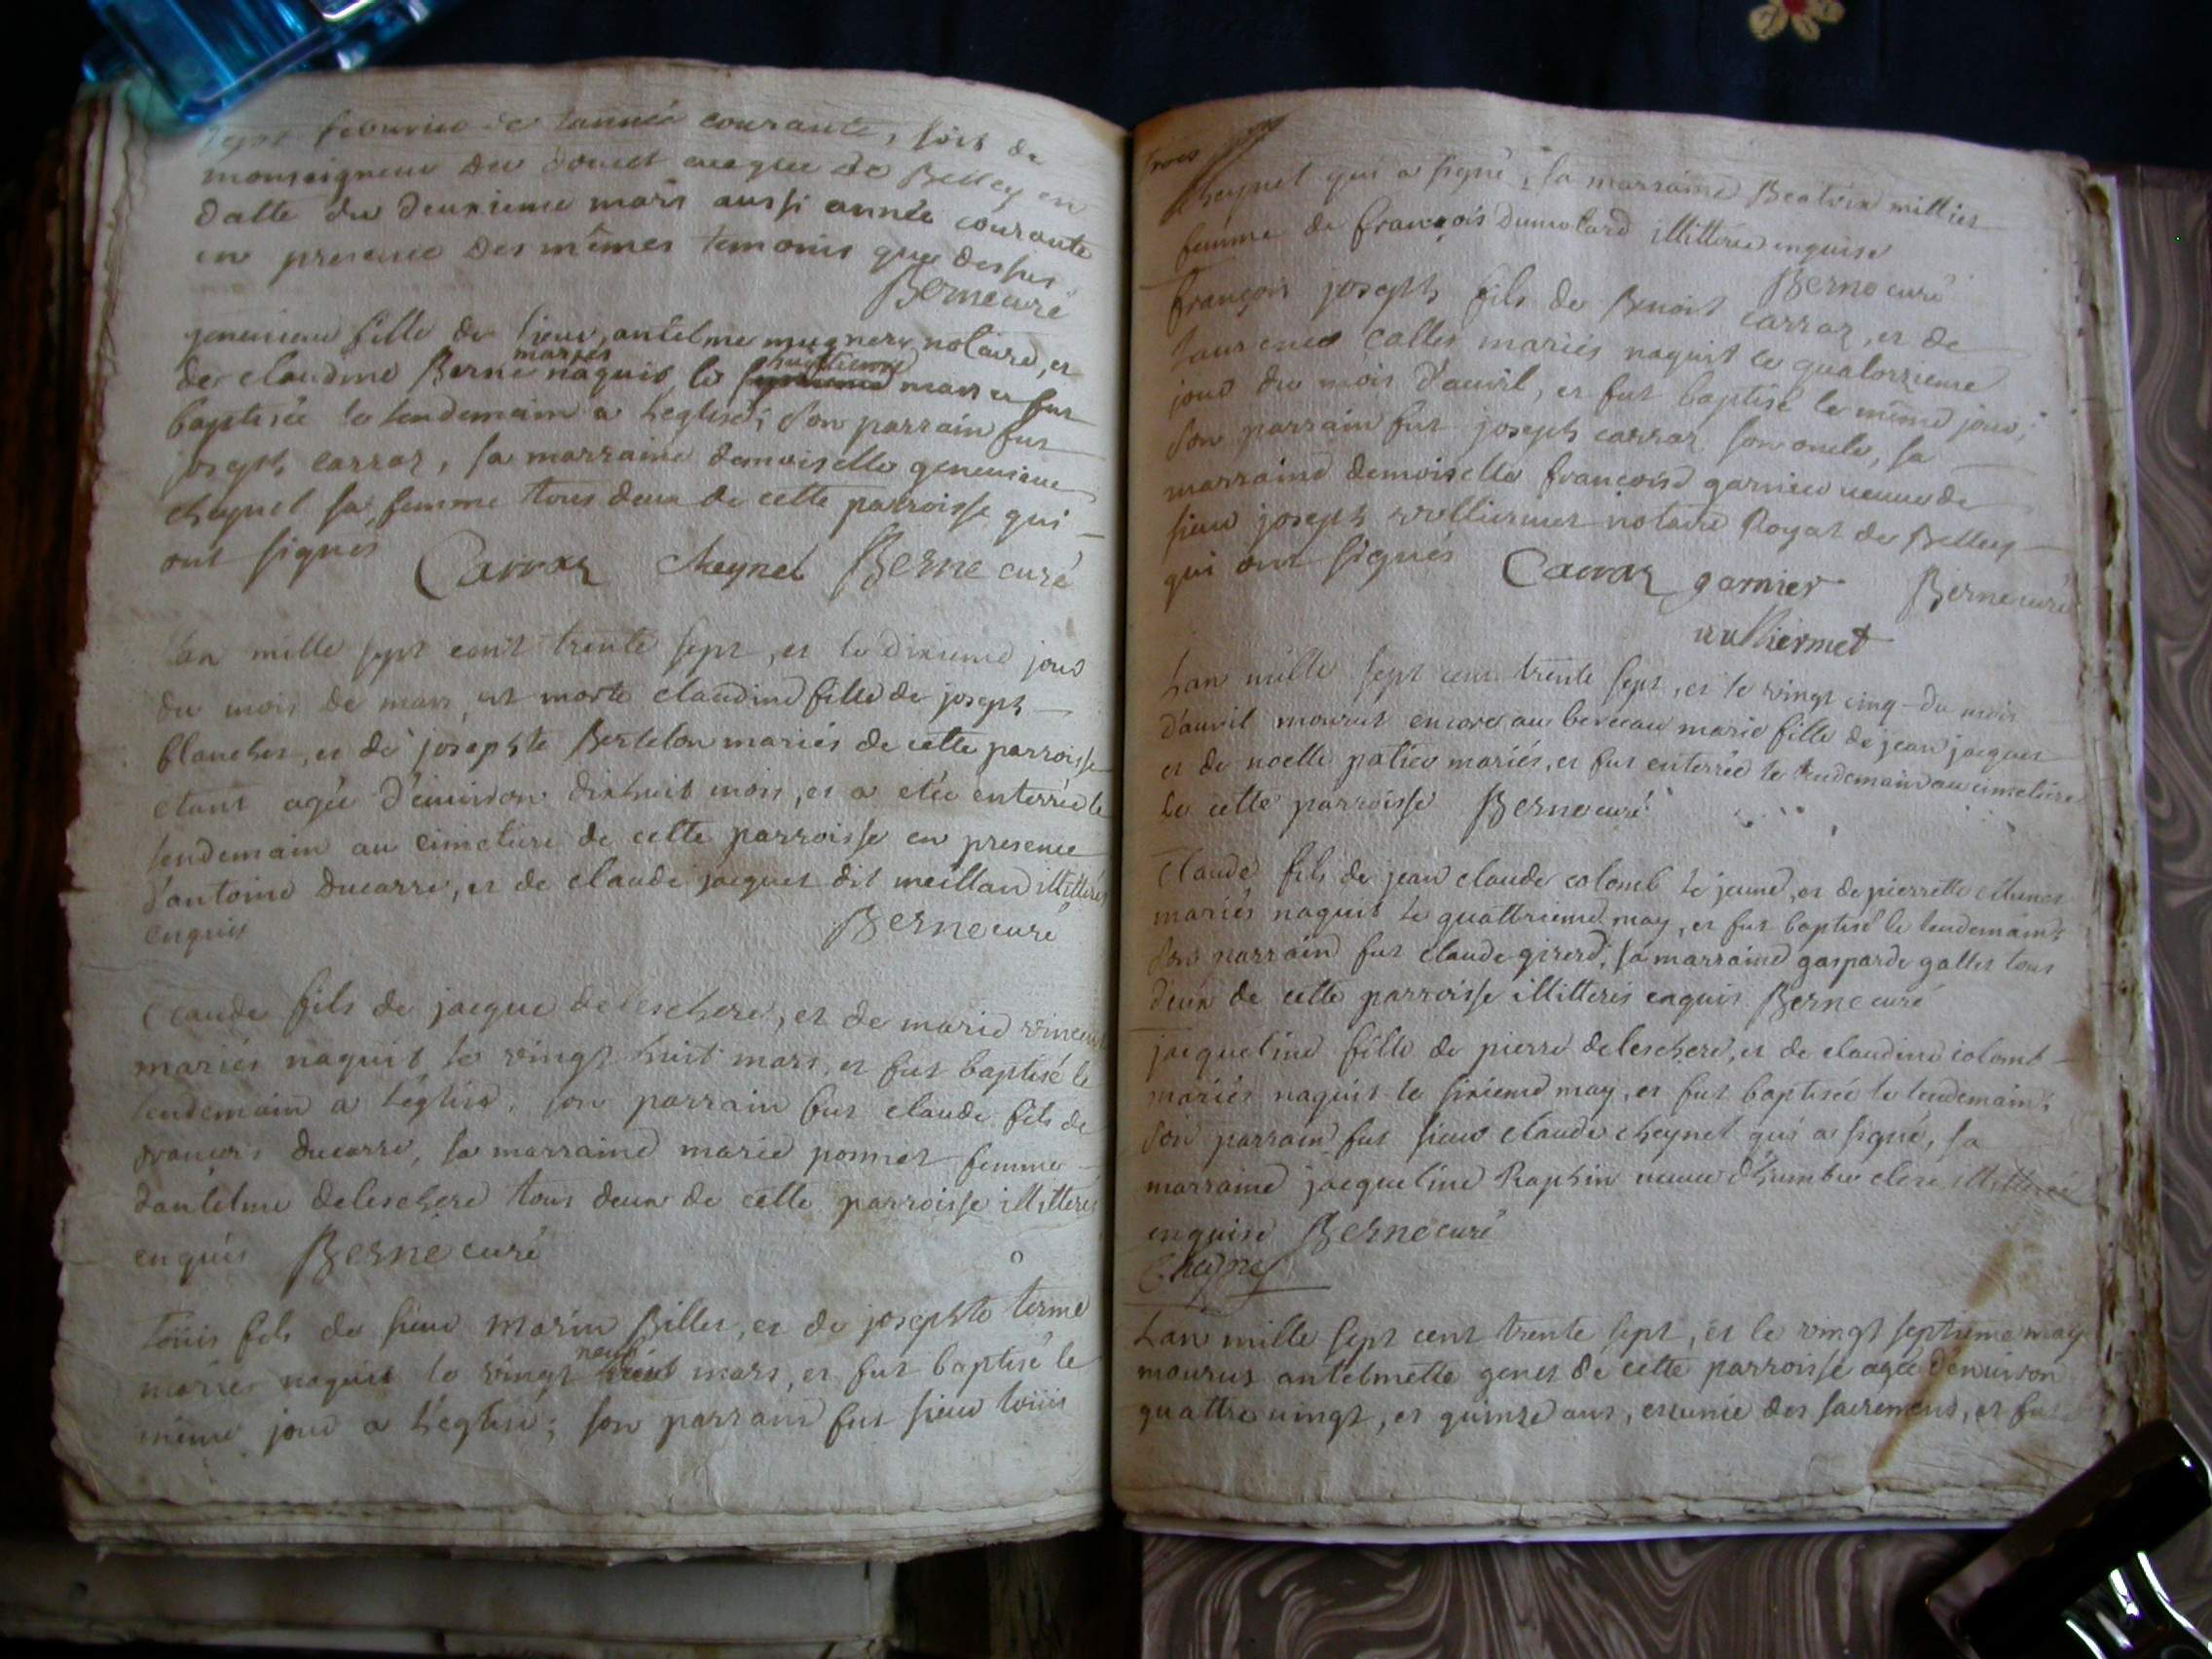 sept fevurier de l'année courante, soit de
monseigneur du doucet eueque de Belley en
datte du deuxieme mars aussi année courante
en presence des mêmes temoins que dessus
Berne curé
geneuieue fille de sieur antelme mugnery notaire, et
de claudine Berne mariés naquit le huittieme mars et fut
baptisée le lendemain a l'eglise; son parrain fut
joseph carraz, sa marraine demoiselle geneuieue
cheynel sa femme tous deux de cette parroisse qui
ont signés Carraz cheynel Berne curé
L'an mille sept cent trente sept, et le dixieme jour
du mois de mars est morte claudine fille de joseph
blanchet, et de josephte Bertelon mariés de cette parroisse
etant agée d'enuiron dixhuit mois, et a etée enterrée le
lendemain au cimetiere de cette parroisse en presence
d'antoine ducarre, et de claude jacquet dit meillan illitterés
enquis Berne curé
Claude fils de jacque deleschere, et de marie vincent
mariés naquit le vingt huit mars, et fut baptisé le
lendemain a l'eglise, son parrain fut claude fils de
francois ducarre, sa marraine marie ponnet femme
d'antelme deleschere tous deux de cette parroisse illitterés
enquis Berne curé
Loüis fils de sieur marin Billet, et de josephte terme
mariés naquit le vingt neuf mars, et fut baptisé le
même jour a l'eglise; son parrain fut sieur loüis
trois
cheynel qui a signé, sa marraine Beatrix millet
femme de françois dumolard illitterée enquise
Berne curé
françois joseph fils de Benoit carraz, et de
laurence callet mariés naquit le quatorzieme
jour du mois d'auril, et fut baptisé le même jour;
son parrain fut joseph carraz son oncle, sa
marraine demoiselle francoise garnier ueuue de
sieur joseph vulliermet notaire Royal de Belley
qui ont signés Carraz garnier Berne curé
vulliermet
L'an mille sept cent trente sept, et le vingt cinq du mois
d'auril mourut encore au berceau marie fille de jean jacquet
et de noelle patier mariés, et fut enterrée le lendemain au cimetiere
de cette parroisse Berne curé
Claude fils de jean claude colomb le jeune, et de pierrette
mariés naquit le quattrieme may, et fut baptisé le lendemain;
son parrain fut claude girerd, sa marraine gasparde gallet tous
deux de cette parroisse illitterés enquis Berne curé
jacqueline fille de pierre deleschere, et de claudine colomb
mariés naquit le sixieme may, et fut baptisée le lendemain;
son parrain fut sieur claude cheynel qui a signé, sa
marraine jacqueline Raphin ueuue d'humbert clerc illitterée
enquise Berne curé
Cheynel
L'an mille sept cent trente sept, et le vingt septieme may
mourut antelmette genet de cette parroisse agée d'enuiron
quattre uingt, et quinze ans, et munie des sacremens, et fut